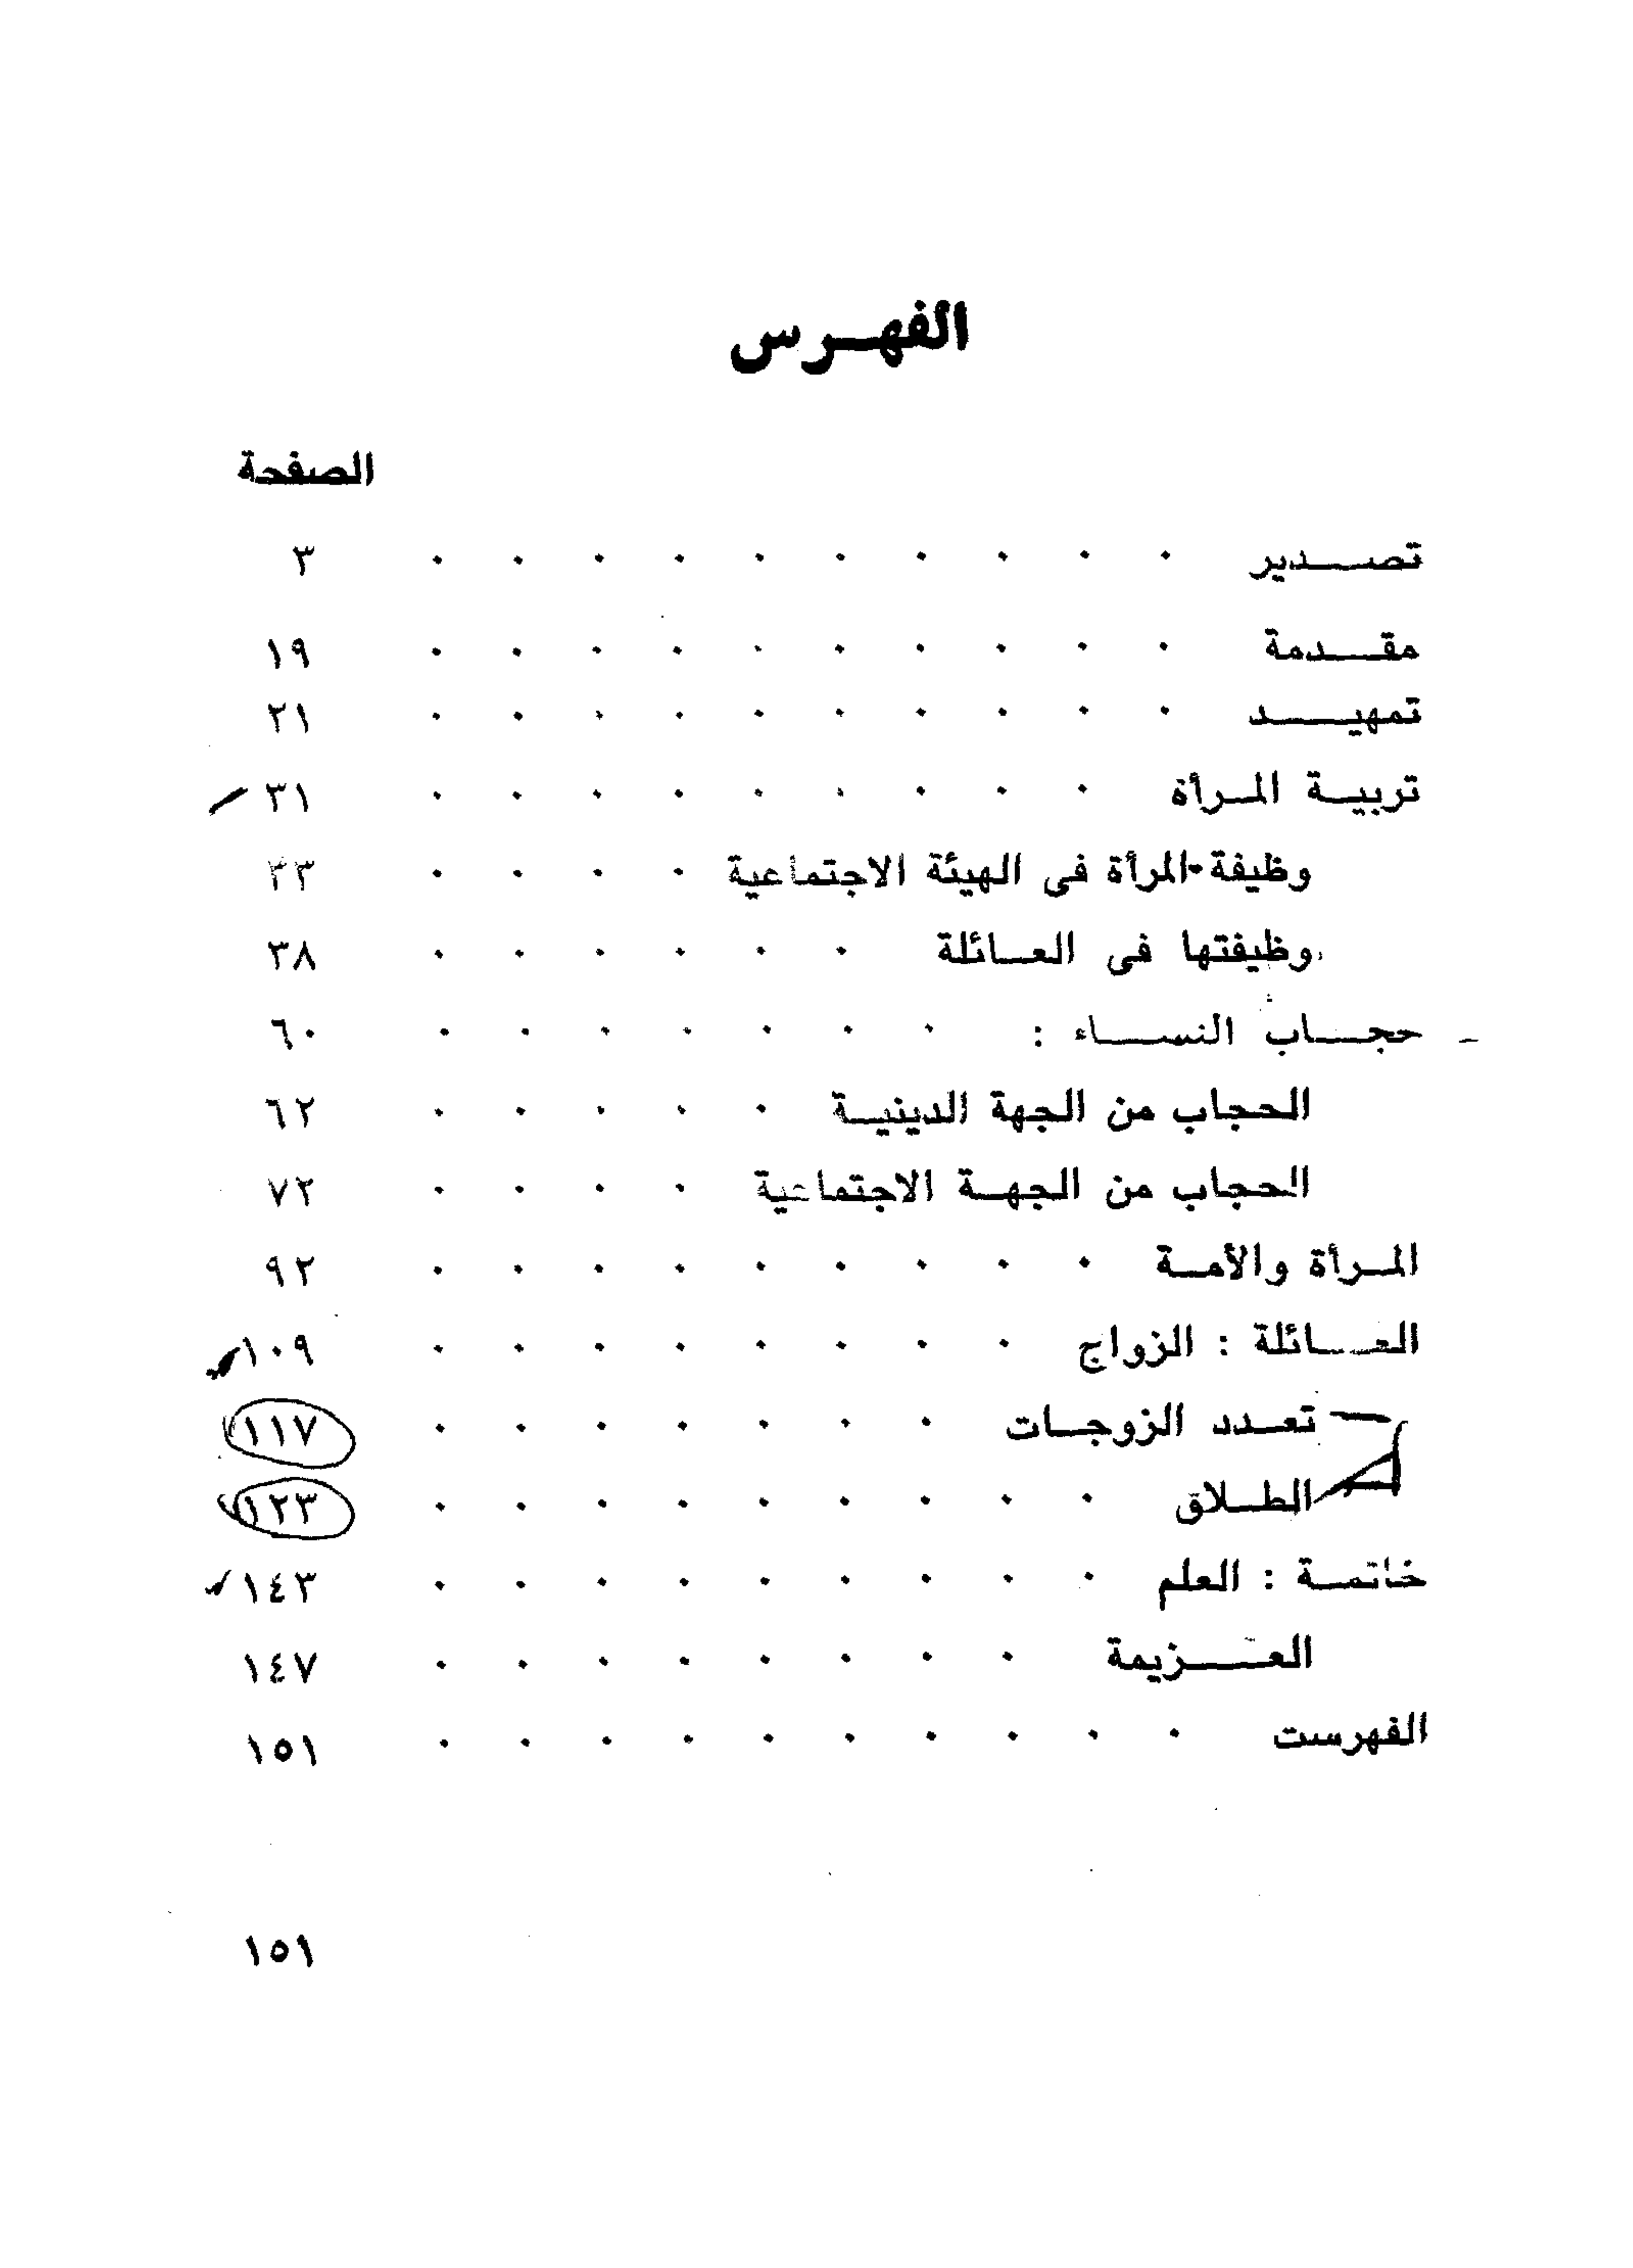 الفهرس
الصفحة
تصدير . . . . . . . . . . ٣
مقدمة . . . . . . . . . . ١٩
تمهيد . . . . . . . . . . ٢١
تربية المرأة . . . . . . . . . ٣١
وظيفة المرأة فى الهيئة الاجتماعية . . . . ٣٣
وظيفتها فى العائلة . . . . . . ٣٨
حجاب النساء : . . . . . . . ٦٠
الحجاب من الجهة الدينية . . . . . ٦٢
الحجاب من الجهة الاجتماعية . . . . ٧٢
المرأة والأمة . . . . . . . . . ٩٢
العائلة : الزواج . . . . . . . . ١٠٩
تعدد الزوجات . . . . . . . ١١٧
الطلاق . . . . . . . . . ١٢٣
خاتمة : العلم . . . . . . . . . ١٤٣
العزيمة . . . . . . . . ١٤٧
الفهرست . . . . . . . . . . ١٥١
١٥١